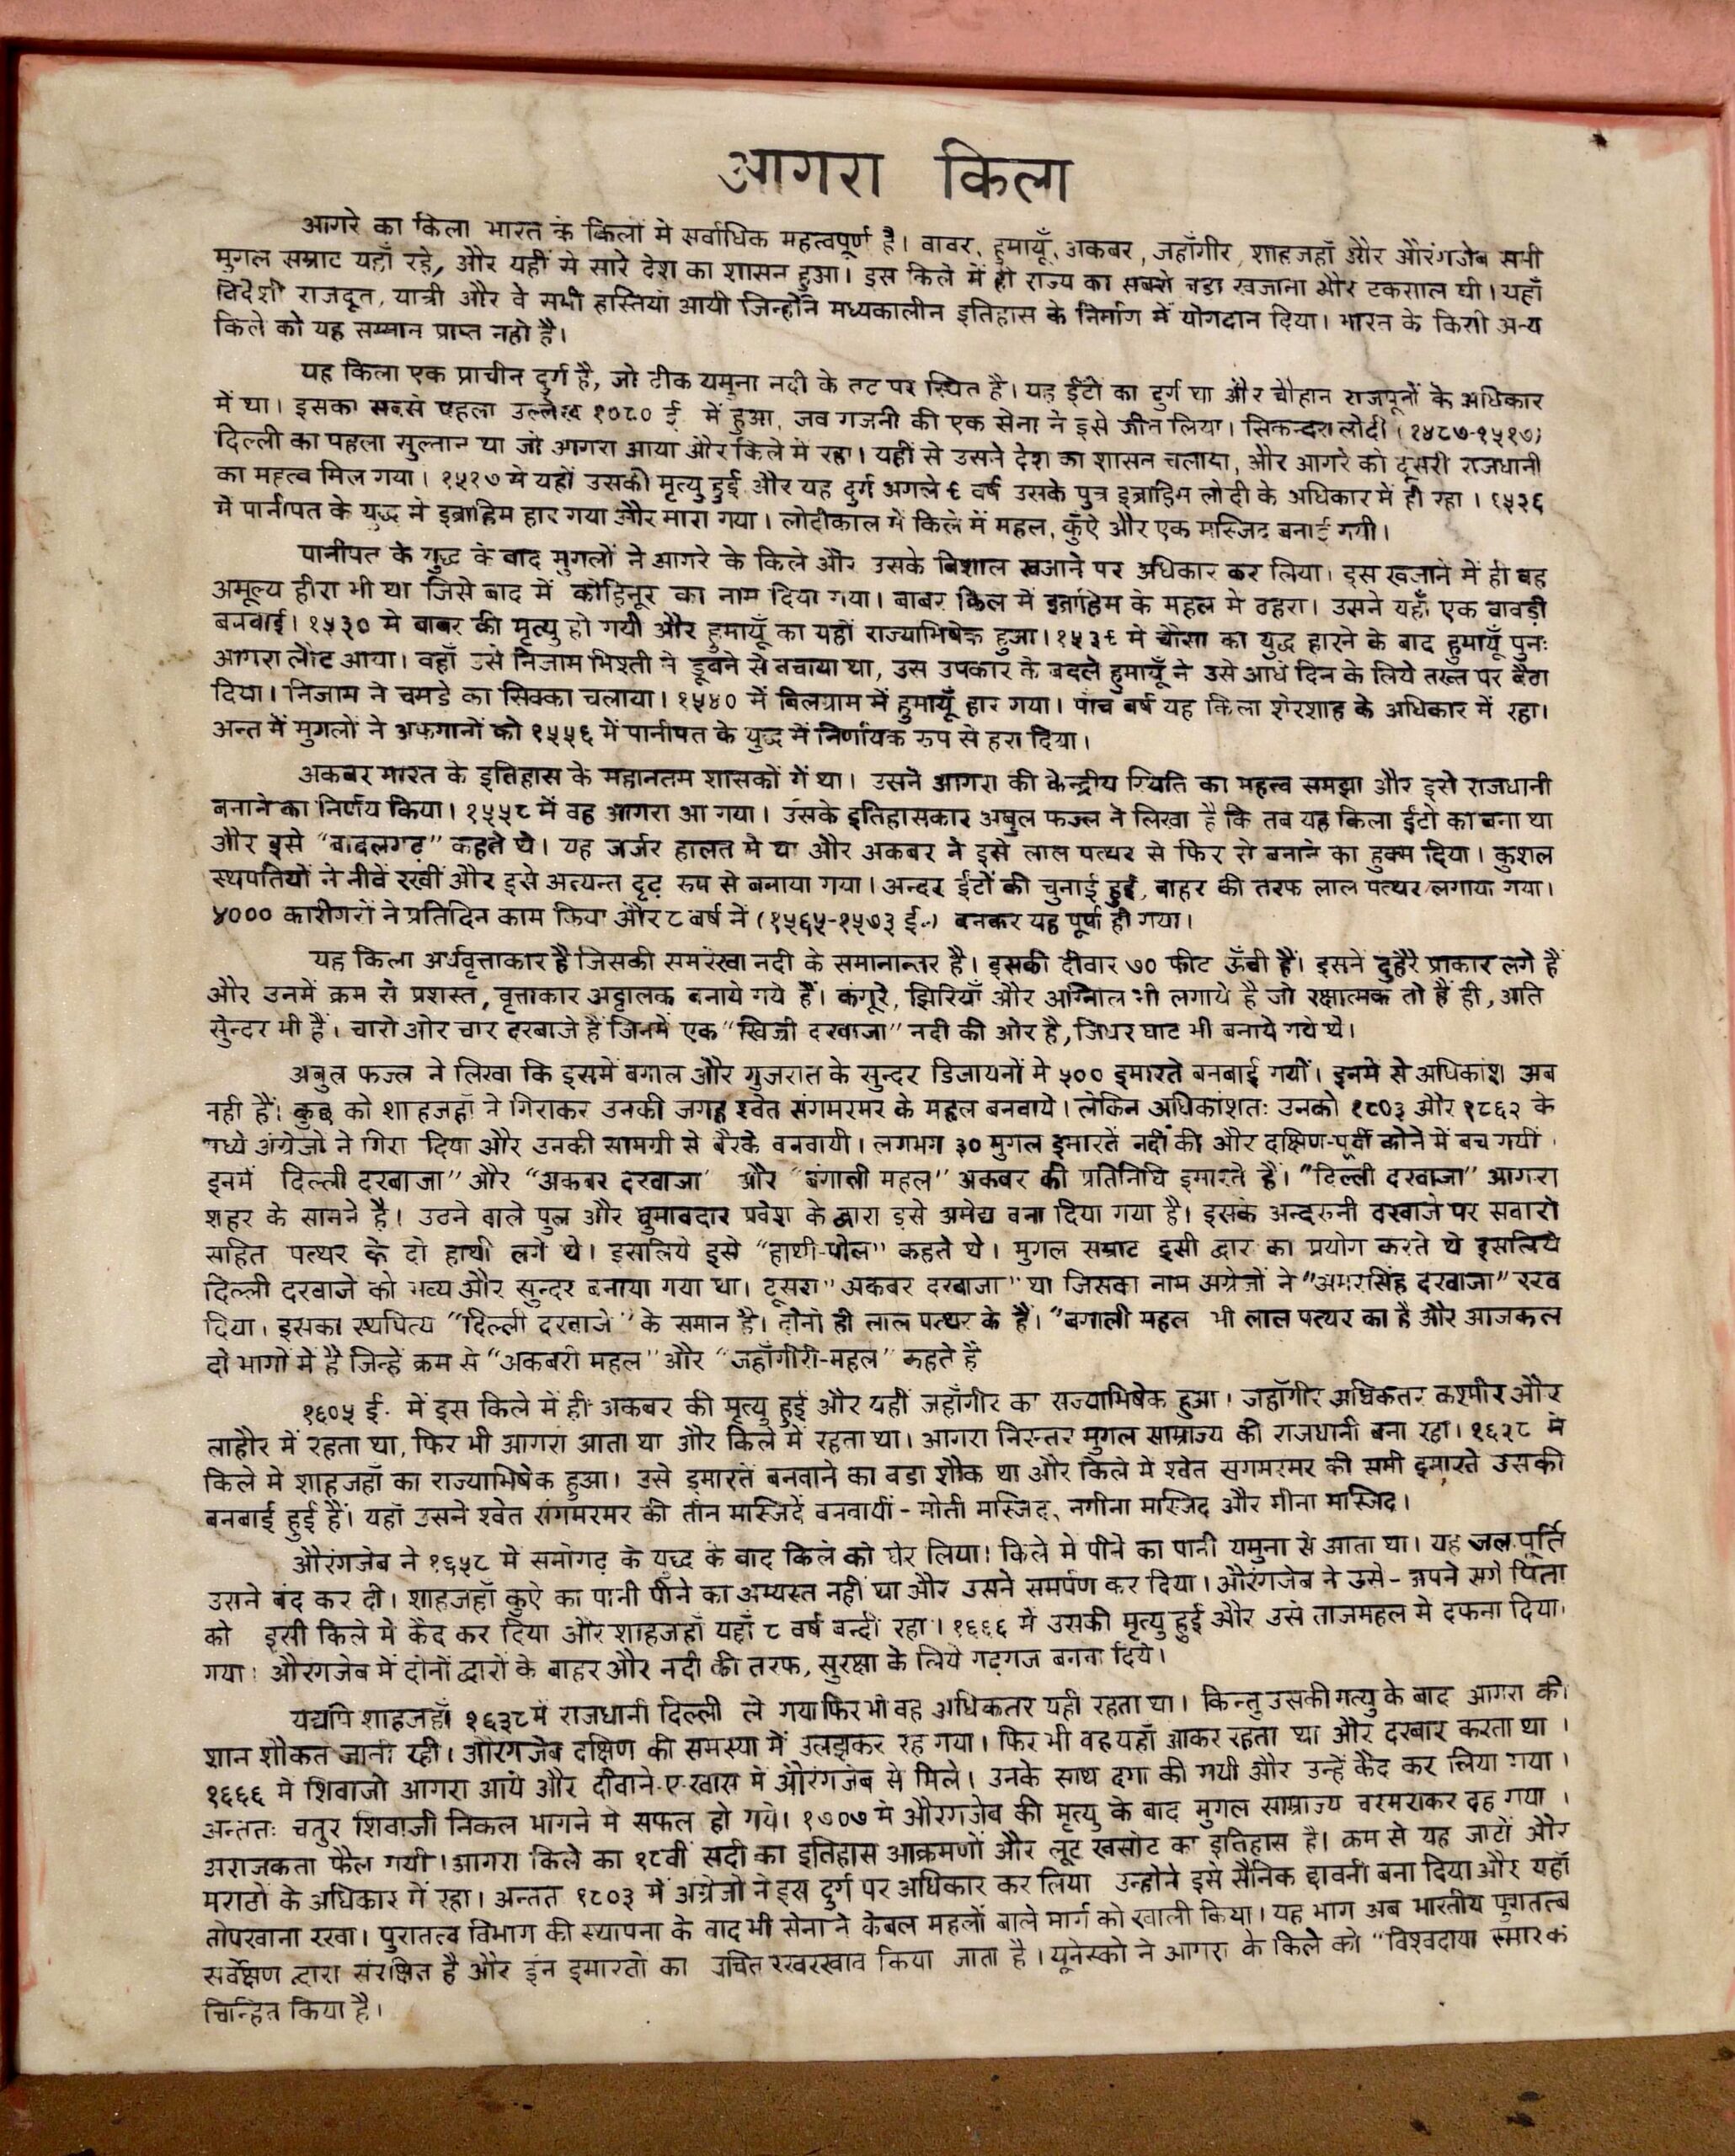 आगरा किला
आगरे का किला भारत के किलों में सर्वाधिक महत्वपूर्ण है। वावर, हुमायूँ, अकबर, जहाँगीर, शाहजहाँ और औरंगजेब सभी
मुगल सम्राट यहाँ रहे, और यहीं से सारे देश का शासन हुआ। इस किले में ही राज्य का सबसे बडा खजाना और टकसाल थी। यहाँ
विदेशी राजदूत, यात्री और वे सभी हस्तियां आयी जिन्होंने मध्यकालीन इतिहास के निर्माण में योगदान दिया। भारत के किसी अन्य
किले को यह सम्मान प्राप्त नही है।
यह किला एक प्राचीन दुर्ग है, जो ठीक यमुना नदी के तट पर स्थित है। यह ईंटो का दुर्ग था और चौहान राजपूतों के अधिकार
में था। इसका सबसे पहला उल्लेख १०८० ई. में हुआ, जव गजनी की एक सेना ने इसे जीत लिया। सिकन्दर लोदी (१४८७-१५१७)
दिल्ली का पहला सुल्तान था जो आगरा आया और किले में रहा। यहीं से उसने देश का शासन चलाया, और आगरे को दूसरी राजधानी
का महत्व मिल गया। १५१७ मे यहाँ उसकी मृत्यु हुई और यह दुर्ग अगले ९ वर्ष उसके पुत्र इब्राहिम लोदी के अधिकार में ही रहा। १५२६
में पानीपत के युद्ध मे इब्राहिम हार गया और मारा गया। लोदीकाल में किले में महल, कुँऐ और एक मस्जिद बनाई गयी।
पानीपत के युद्ध के बाद मुगलों ने आगरे के किले और उसके विशाल खजाने पर अधिकार कर लिया। इस खजाने में ही वह
अमूल्य हीरा भी था जिसे बाद में कोहिनूर का नाम दिया गया। बाबर किले में इब्राहिम के महल में ठहरा। उसने यहाँ एक बावड़ी
बनवाई। १५३० मे बाबर की मृत्यु हो गयी और हुमायूँ का यहाँ राज्याभिषेक हुआ। १५३९ मे चौसा का युद्ध हारने के बाद हुमायूँ पुनः
आगरा लौट आया। वहाँ उसे निजाम भिश्ती ने डूबने से बचाया था, उस उपकार के बदले हुमायूँ ने उसे आधे दिन के लिये तख्त पर बैठा
दिया। निजाम ने चमडे का सिक्का चलाया। १५४० में बिलग्राम में हुमायूँ हार गया। पांच वर्ष यह किला शेरशाह के अधिकार में रहा।
अन्त में मुगलों ने अफगानों को १५५६ में पानीपत के युद्ध में निर्णायक रुप से हरा दिया।
अकबर भारत के इतिहास के महानतम शासकों में था। उसने आगरा की केन्द्रीय स्थिति का महत्व समझा और इसे राजधानी
बनाने का निर्णय किया। १५५८ में वह आगरा आ गया। उसके इतिहासकार अबुल फज्ल ने लिखा है कि तब यह किला ईंटो का बना था
और इसे "बादलगढ़" कहते थे। यह जर्जर हालत मे था और अकबर ने इसे लाल पत्थर से फिर से बनाने का हुक्म दिया। कुशल
स्थपतियों ने नीवें रखीं और इसे अत्यन्त दृढ़ रुप से बनाया गया। अन्दर ईंटों की चुनाई हुई, बाहर की तरफ लाल पत्थर लगाया गया।
४००० कारीगरों ने प्रतिदिन काम किया और ८ वर्ष में (१५६५-१५७३ ई.) बनकर यह पूर्ण हो गया।
यह किला अर्धवृत्ताकार है जिसकी समरेखा नदी के समानान्तर है। इसकी दीवार ७० फीट ऊँची है। इसने दुहैरे प्राकार लगे हैं
और उनमें क्रम से प्रशस्त, वृत्ताकार अट्टालक बनाये गये हैं। कंगूरे, झिरियाँ और अग्निाल भी लगाये है जो रक्षात्मक तो हैं ही, अति
सुन्दर भी हैं। चारों ओर चार दरबाजे हैं जिनमें एक "खिज्री दरवाजा" नदी की ओर है, जिधर घाट भी बनाये गये थे।
अबुल फज्ल ने लिखा कि इसमें बगाल और गुजरात के सुन्दर डिजायनों मे ५०० इमारते बनबाई गयीं। इनमे से अधिकांश अब
नही हैं। कुछ को शाहजहाँ ने गिराकर उनकी जगह श्वेत संगमरमर के महल बनवाये। लेकिन अधिकांशतः उनको १८०३ और १८६२ के
मध्ये अंग्रेजो ने गिरा दिया और उनकी सामग्री से बैरकें वनवायी। लगभग ३० मुगल इमारतें नदी की और दक्षिण-पूर्वी कोने में बच गयीं।
इनमें दिल्ली दरबाजा" और "अकबर दरवाजा" और "बंगाली महल" अकबर की प्रतिनिधि इमारते हैं। "दिल्ली दरवाजा" आगरा
शहर के सामने है। उठने वाले पुल और घुमावदार प्रवेश के द्वारा इसे अमेद्य वना दिया गया है। इसके अन्दरुनी दरवाजे पर सवारो
सहित पत्थर के दो हाथी लगे थे। इसलिये इसे "हाथी-पोल" कहते थे। मुगल सम्राट इसी द्वार का प्रयोग करते थे इसलिये
दिल्ली दरवाजे को भव्य और सुन्दर बनाया गया था। दूसरा "अकबर दरबाजा" था जिसका नाम अग्रेजों ने "अमरसिंह दरवाजा" रख
दिया। इसका स्थपित्य "दिल्ली दरवाजे" के समान है। दोनो ही लाल पत्थर के हैं। "बगाली महल भी लाल पत्थर का है और आजकल
दो भागों में है जिन्हें क्रम से "अकबरी महल" और "जहाँगीरी-महल" कहते हैं
१६०५ ई. में इस किले में ही अकबर की मृत्यु हुई और यहीं जहाँगीर का राज्याभिषेक हुआ। जहाँगीर अधिकतर कश्मीर और
लाहौर में रहता था, फिर भी आगरा आता था और किले में रहता था। आगरा निरन्तर मुगल साम्राज्य की राजधानी बना रहा। १६२८ मे
किले मे शाहजहाँ का राज्याभिषेक हुआ। उसे इमारतें बनवाने का बडा शौक था और किले मे श्वेत सगमरमर की सभी इमारते उसकी
बनबाई हुई हैं। यहाँ उसने श्वेत संगमरमर की तीन मस्जिदें बनवायीं - मोती मस्जिद, नगीना मस्जिद और मीना मस्जिद।
औरंगजेब ने १६५८ मे समोगढ़ के युद्ध के बाद किले को घेर लिया। किले मे पीने का पानी यमुना से आता था। यह जल पूर्ति
उसने बंद कर दी। शाहजहाँ कुऐ का पानी पीने का अभ्यस्त नहीं था और उसने समर्पण कर दिया। औरंगजेब ने उसे - अपने सगे पिता
को इसी किले में कैद कर दिया और शाहजहाँ यहाँ ८ वर्ष बन्दी रहा। १६६६ में उसकी मृत्यु हुई और उसे ताजमहल मे दफना दिया।
गया। औरंगजेब में दोनों द्वारो के बाहर और नदी की तरफ, सुरक्षा के लिये गढ़गज बनवा दिये।
यद्यपि शाहजहाँ १६३८ में राजधानी दिल्ली ले गया फिर भी वह अधिकतर यही रहता था। किन्तु उसकी मत्यु के बाद आगरा की
शान शौकत जाती रही। औरंगजेब दक्षिण की समस्या में उलझकर रह गया। फिर भी वह यहाँ आकर रहता था और दरबार करता था।
१६६६ मे शिवाजी आगरा आये और दीवाने-ए-खास मे औरंगजेब से मिले। उनके साथ दगा की गयी और उन्हें कैद कर लिया गया।
अन्ततः चतुर शिवाजी निकल भागने मे सफल हो गये। १७०७ मे औरगजेब की मृत्यु के बाद मुगल साम्राज्य चरमराकर ढह गया।
अराजकता फैल गयी। आगरा किले का १८वीं सदी का इतिहास आक्रमणों और लूट खसोट का इतिहास है। क्रम से यह जाटों और
मराठो के अधिकार में रहा। अन्तत १८०३ में अंग्रेजो ने इस दुर्ग पर अधिकार कर लिया उन्होने इसे सैनिक छावनी बना दिया और यहाँ
तोपखाना रखा। पुरातत्व विभाग की स्थापना के वाद भी सेना ने केबल महलों बाले मार्ग को खाली किया। यह भाग अब भारतीय पुरातत्ब
सर्वेक्षण द्वारा संरक्षित है और इन इमारतो का उचित रखरखाव किया जाता है। यूनेस्को ने आगरा के किले को "विश्वदाया स्मारक
चिन्हित किया है।